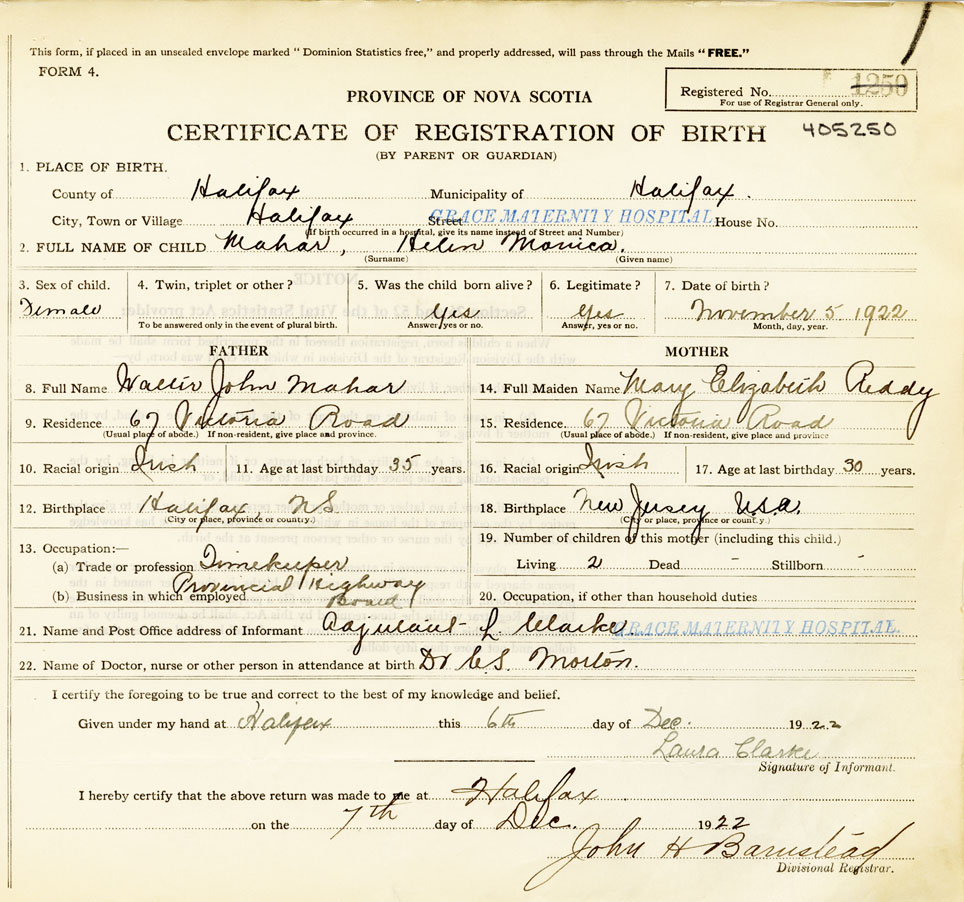 This form, if placed in an unsealed envelope marked "Dominion Statistics free," and properly addressed, will pass through the Mails "FREE."
FORM 4.
Registered No. 1250
For use of Registrar General only.
PROVINCE OF NOVA SCOTIA
CERTIFICATE OF REGISTRATION OF BIRTH 405250
(BY PARENT OR GUARDIAN)
1. PLACE OF BIRTH.
County of Halifax Municipality of Halifax.
City, Town or Village Halifax Street GRACE MATERNITY HOSPITAL House No.
(If birth occurred in a hospital, give its name instead of Street and Number)
2. FULL NAME OF CHILD Mahar, Helen Monica.
(Surname) (Given name)
3. Sex of child. 4. Twin, triplet or other? 5. Was the child born alive? 6. Legitimate? 7. Date of birth?
Female Yes Yes November 5 1922
To be answered only in the event of plural birth. Answer, yes or no. Answer, yes or no. Month, day, year.
FATHER MOTHER
8. Full Name Walter John Mahar 14. Full Maiden Name Mary Elizabeth Reddy
9. Residence 67 Victoria Road 15. Residence 67 Victoria Road
(Usual place of abode.) If non-resident, give place and province. (Usual place of abode.) If non-resident, give place and province
10. Racial origin Irish 11. Age at last birthday 35 years. 16. Racial origin Irish 17. Age at last birthday 30 years.
12. Birthplace Halifax, N.S. 18. Birthplace New Jersey U.S.A.
(City or place, province or country.) (City or place, province or country.)
19. Number of children of this mother (including this child.)
13. Occupation:—
(a) Trade or profession Timekeeper Living 2 Dead – Stillborn –
(b) Business in which employed Provincial Highway Board 20. Occupation, if other than household duties
21. Name and Post Office address of Informant Adjutant L. Clarke. GRACE MATERNITY HOSPITAL.
22. Name of Doctor, nurse or other person in attendance at birth Dr C.S. Morton.
I certify the foregoing to be true and correct to the best of my knowledge and belief.
Given under my hand at Halifax this 6th day of Dec. 1922
Laura Clarke
Signature of Informant.
I hereby certify that the above return was made to me at Halifax
on the 7th day of Dec. 1922
John H Barnstead
Divisional Registrar.